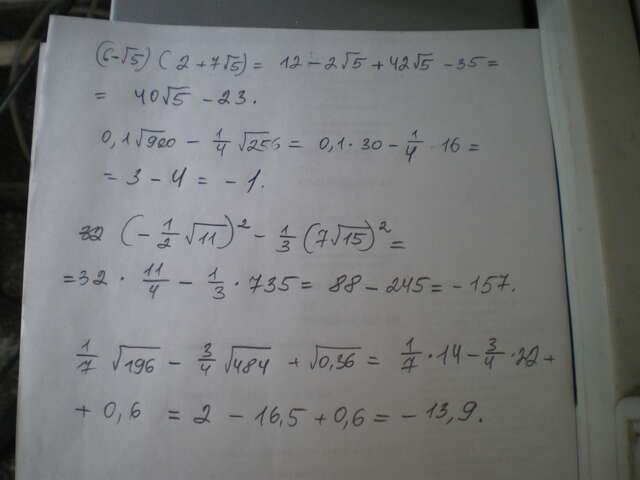 (6-√5) (2+7√5) = 12-2√5+42√5-35=
= 40√5-23.
0,1√900 - 1/4 √256 = 0,1·30 - 1/4 · 16 =
= 3-4 = -1.
32 (-1/2 √11)² - 1/3 (7√15)² =
=32 · 11/4 - 1/3 · 735 = 88-245=-157.
1/7 √196 - 3/4 √484 + √0,36 = 1/7 · 14 - 3/4 · 22 +
+ 0,6 = 2 - 16,5 + 0,6 = - 13,9.